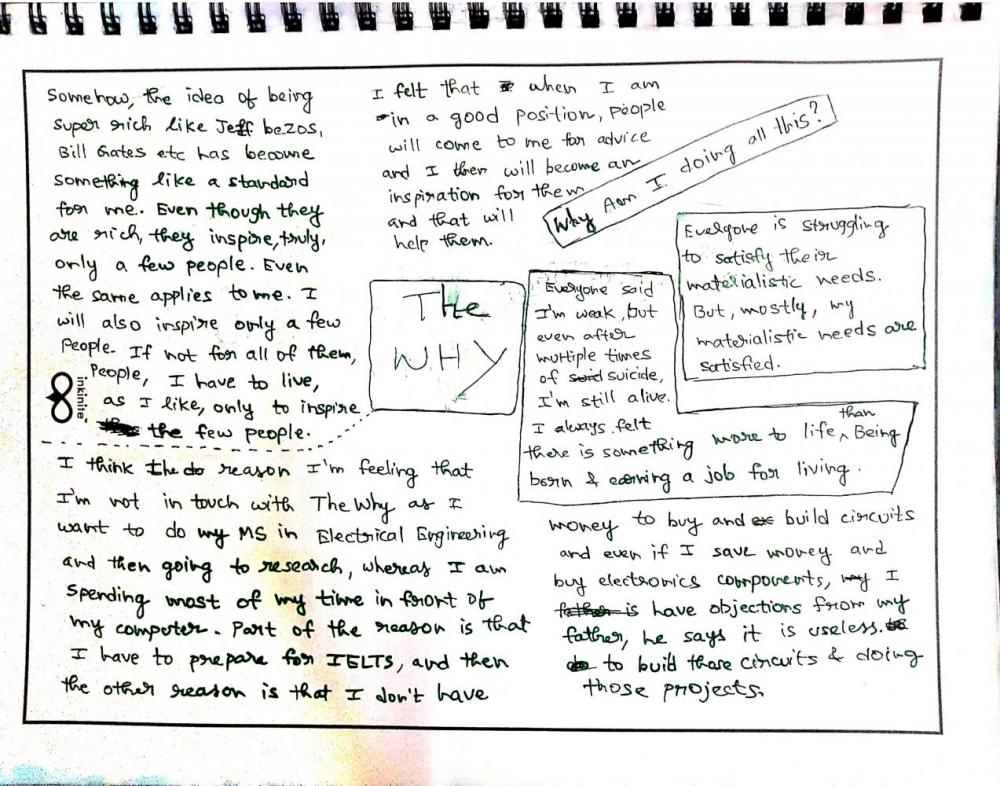 Somehow, the idea of being
super rich like Jeff bezos,
Bill Gates etc has become
something like a standard
for me. Even though they
are rich, they inspire, truly,
only a few people. Even
the same applies to me. I
will also inspire only a few
People. If not for all of them,
People, I have to live,
as I like, only to inspire
the few people.
inkinite
I felt that when I am
in a good position, people
will come to me for advice
and I then will become an
inspiration for them
and that will
help them.
Why Am I doing all this?
The
WHY
Everyone is struggling
to satisfy their
materialistic needs.
But, mostly, my
materialistic needs are
satisfied.
Everyone said
I'm weak, but
even after
multiple times
of suicide,
I'm still alive.
I always felt
there is something more to life than Being
born & earning a job for living.
I think the reason I'm feeling that
I'm not in touch with The Why as I
want to do my MS in Electrical Engineering
and then going to research, whereas I am
spending most of my time in front of
my computer. Part of the reason is that
I have to prepare for IELTS, and then
the other reason is that I don't have
money to buy and build circuits
and even if I save money and
buy electronics components, I
have objections from my
father, he says it is useless.
to build those circuits & doing
those projects.